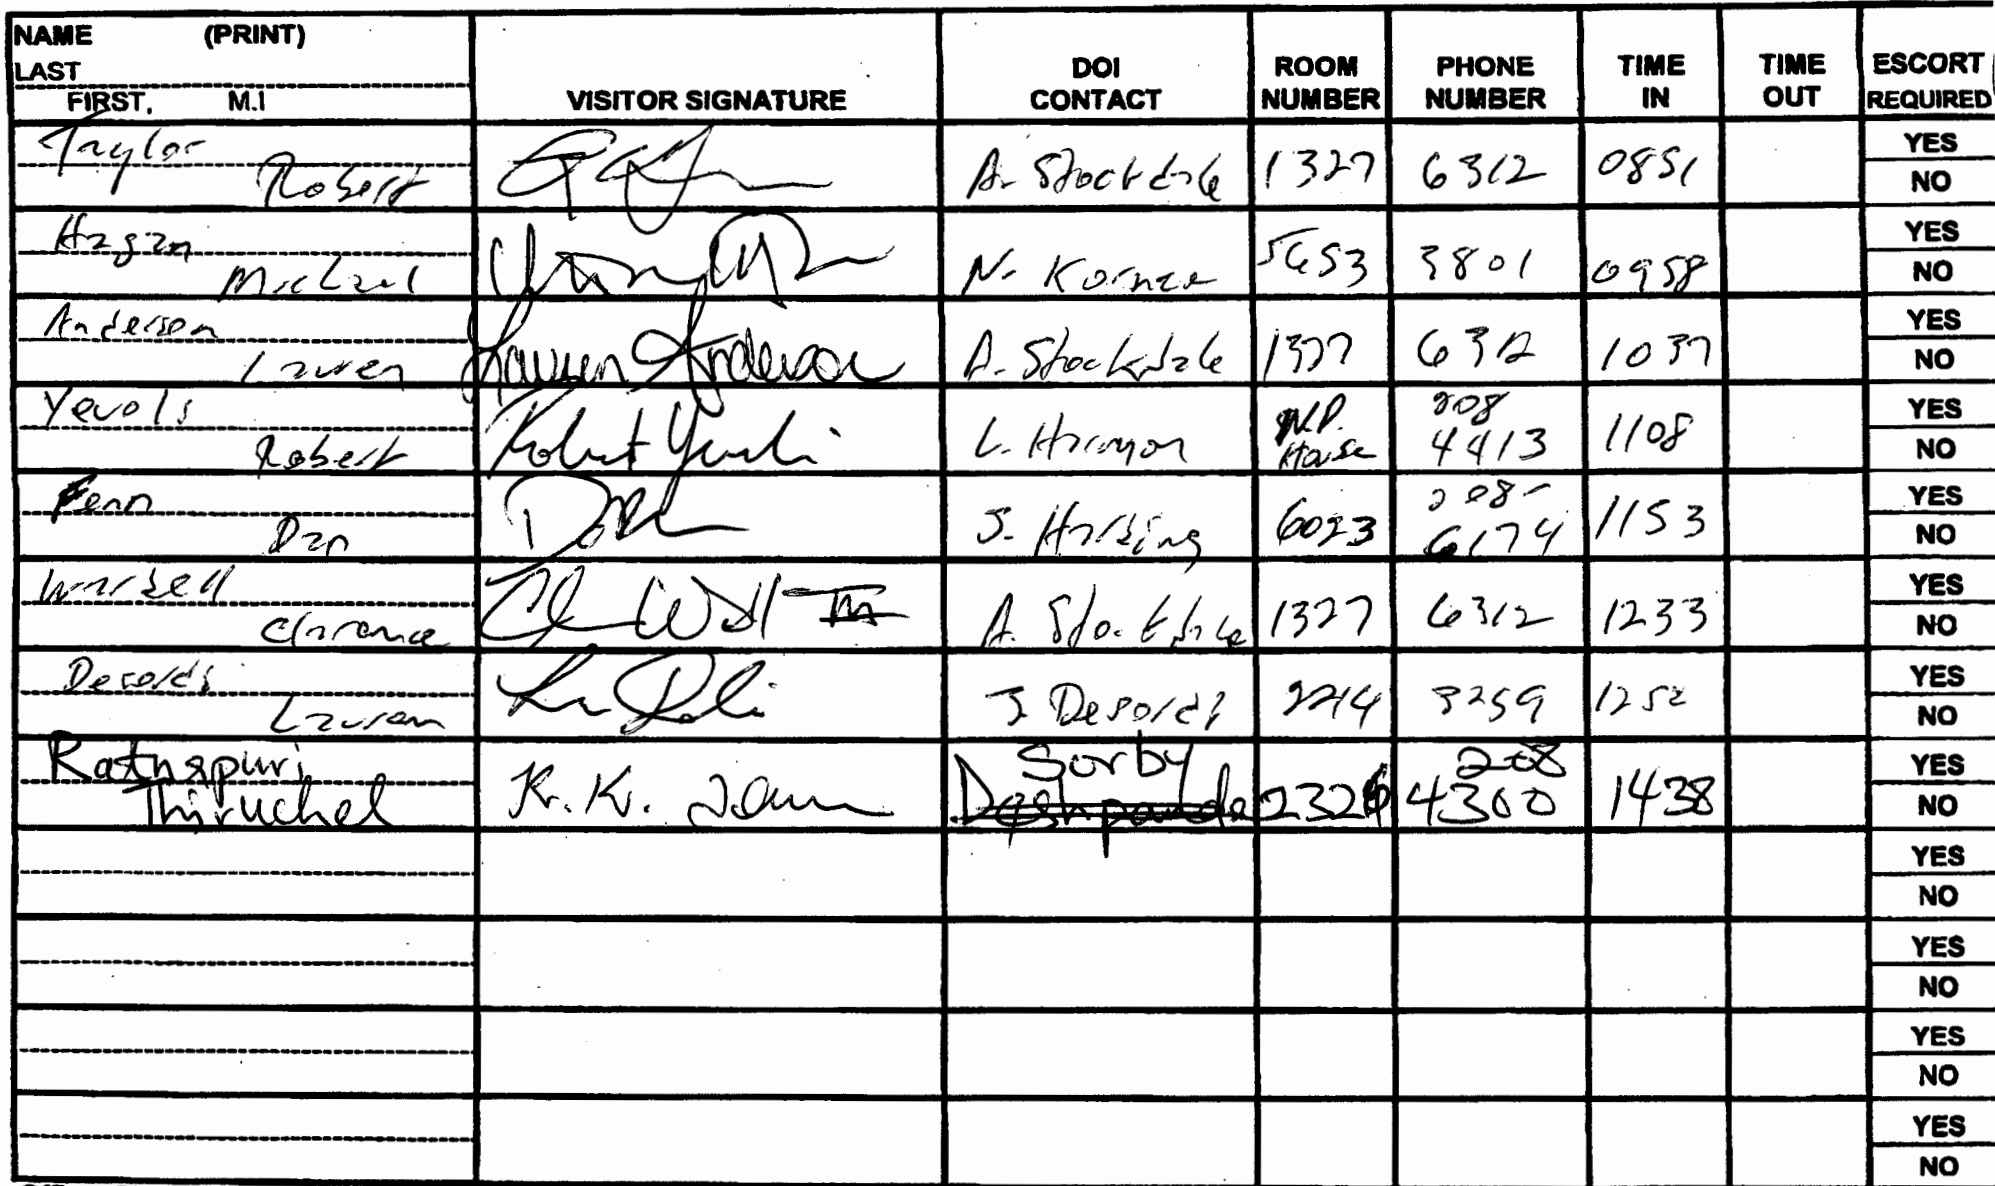 NAME (PRINT)
LAST
FIRST, M.I
VISITOR SIGNATURE
DOI CONTACT
ROOM NUMBER
PHONE NUMBER
TIME IN
TIME OUT
ESCORT REQUIRED
Taylor
Robert
A. Stockdale 1327 6312 0851
YES
NO
Hagan
Michael
5653 3801 0958
YES
NO
Anderson
Lauren
Lauren Anderson
A. Stockdale 1327 6312 1037
YES
NO
Yevoli
Robert
Robert Yevoli
L. Harmon
W.P. House
208
4413
1108
YES
NO
Penn
Dan
J. Harding 6023
208-
6174
1153
YES
NO
Wardell
Clarence
A. Stockdale 1327 6312 1233
YES
NO
Desordi
Lauren
J. Desordi 3259 1252
YES
NO
Rathnapuri
Thiruchel
K. K.
Sorby
Deshpande
2326
208
4300
1438
YES
NO
YES
NO
YES
NO
YES
NO
YES
NO